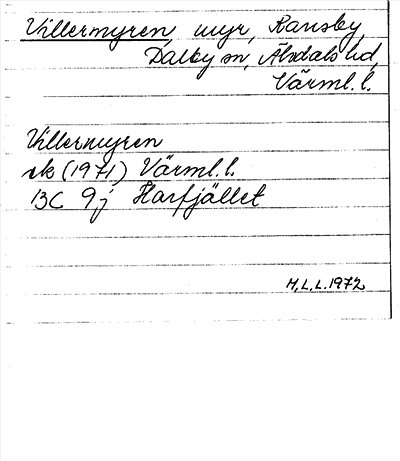 Villermyren, myr, Ransby,
Dalby sn, Älvdals hd,
Värml. l.
Villermyren
ek (1971) Värml. l.
13C 9j Harfjället
H.L.L. 1972